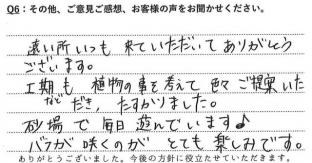 Q6：その他、ご意見ご感想、お客様の声をお聞かせください。
遠い所いつも来ていただいてありがとう
ございます。
工期も植物の事を考えて色々ご提案いた
など だき、たすかりました。
砂場で毎日遊んでいます♪
バラが咲くのがとても楽しみです。
ありがとうございました。今後の方針に役立たせていただきます。